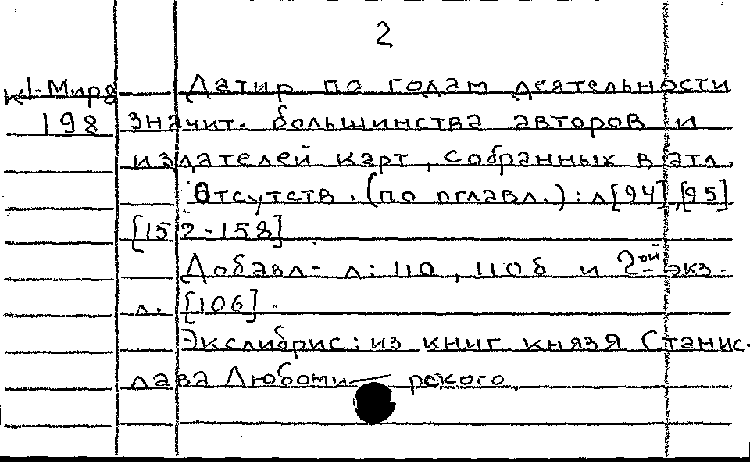 2
к1-Мира Датир по годам деятельности
198 значит. большинства авторов и
издателей карт, собранных в атл.
Отсутств. (по оглавл.): л[94],[95]
[152-158]
Добавл- л: 110, 110б и 2ой экз.
л. [106].
Экслибрис: из книг князя Станис-
лава Любоми- рского.